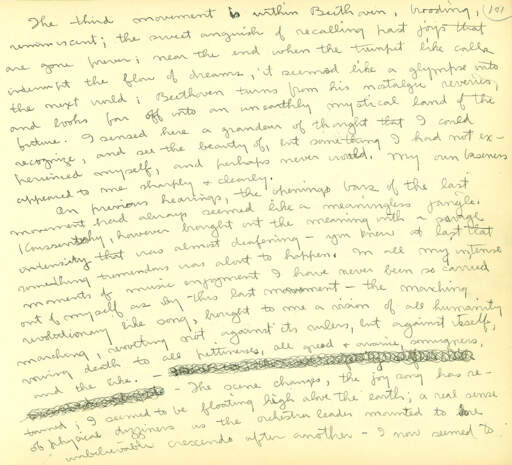 191
The third movement is within Beethoven, brooding,
reminiscent; the sweet anguish of recalling past joys that
are gone forever; near the end when the trumpet like calls
interrupt the flow of dreams, it seemed like a glympse into
the next world; Beethoven turns from his nostalgic reveries,
and looks far off into an unearthly mystical land of the
future. I sensed here a grandeur of thought that I could
recognize, and see the beauty of, but something I had not ex-
perienced myself, and perhaps never would. My own baseness
appeared to me sharply + clearly.
On previous hearings, the openings bars of the last
movement had always seemed like a meaningless jangle.
Koussevitzky, however brought out the meaning with a savage
intensity that was almost deafening - you knew at last that
something tremendous was about to happen. In all my intense
moments of music enjoyment I have never been so carried
out of myself as by this last movement - the marching
revolutionary like song, brought to me a vision of all humanity
marching, revolting not against its rulers, but against itself,
vowing death to all pettiness, all greed + avarice, smugness,
and the like. -
- The scene changes, the joy song has re-
turned! I seemed to be floating high above the earth; a real sense
of physical dizziness as the orchestra leader mounted to
unbelievable crescendo after another - I now seemed to